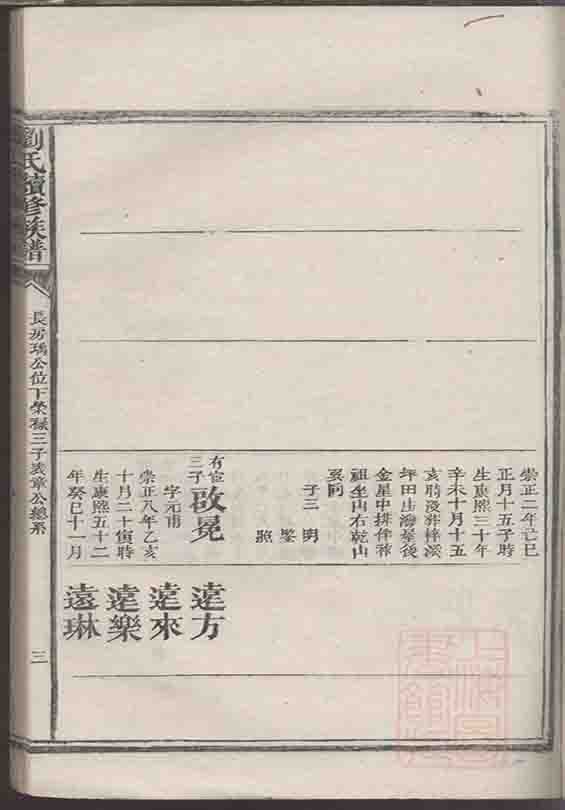 劉氏續修族譜
長房瑀公位下榮祿三子表章公總系
三
崇正二年己巳
正月十五子時
生康熙三十年
辛未十月十五
亥時歿葬梓溪
坪田庄灣墓後
金星中排伴葬
祖坐山右乾山
巽向
子三 明
鑒
照
有宦
三子
啟冕
字元甫
崇正八年乙亥
十月二十寅時
生康熙五十二
年癸巳十一月
遠方
遠來
遠樂
遠琳